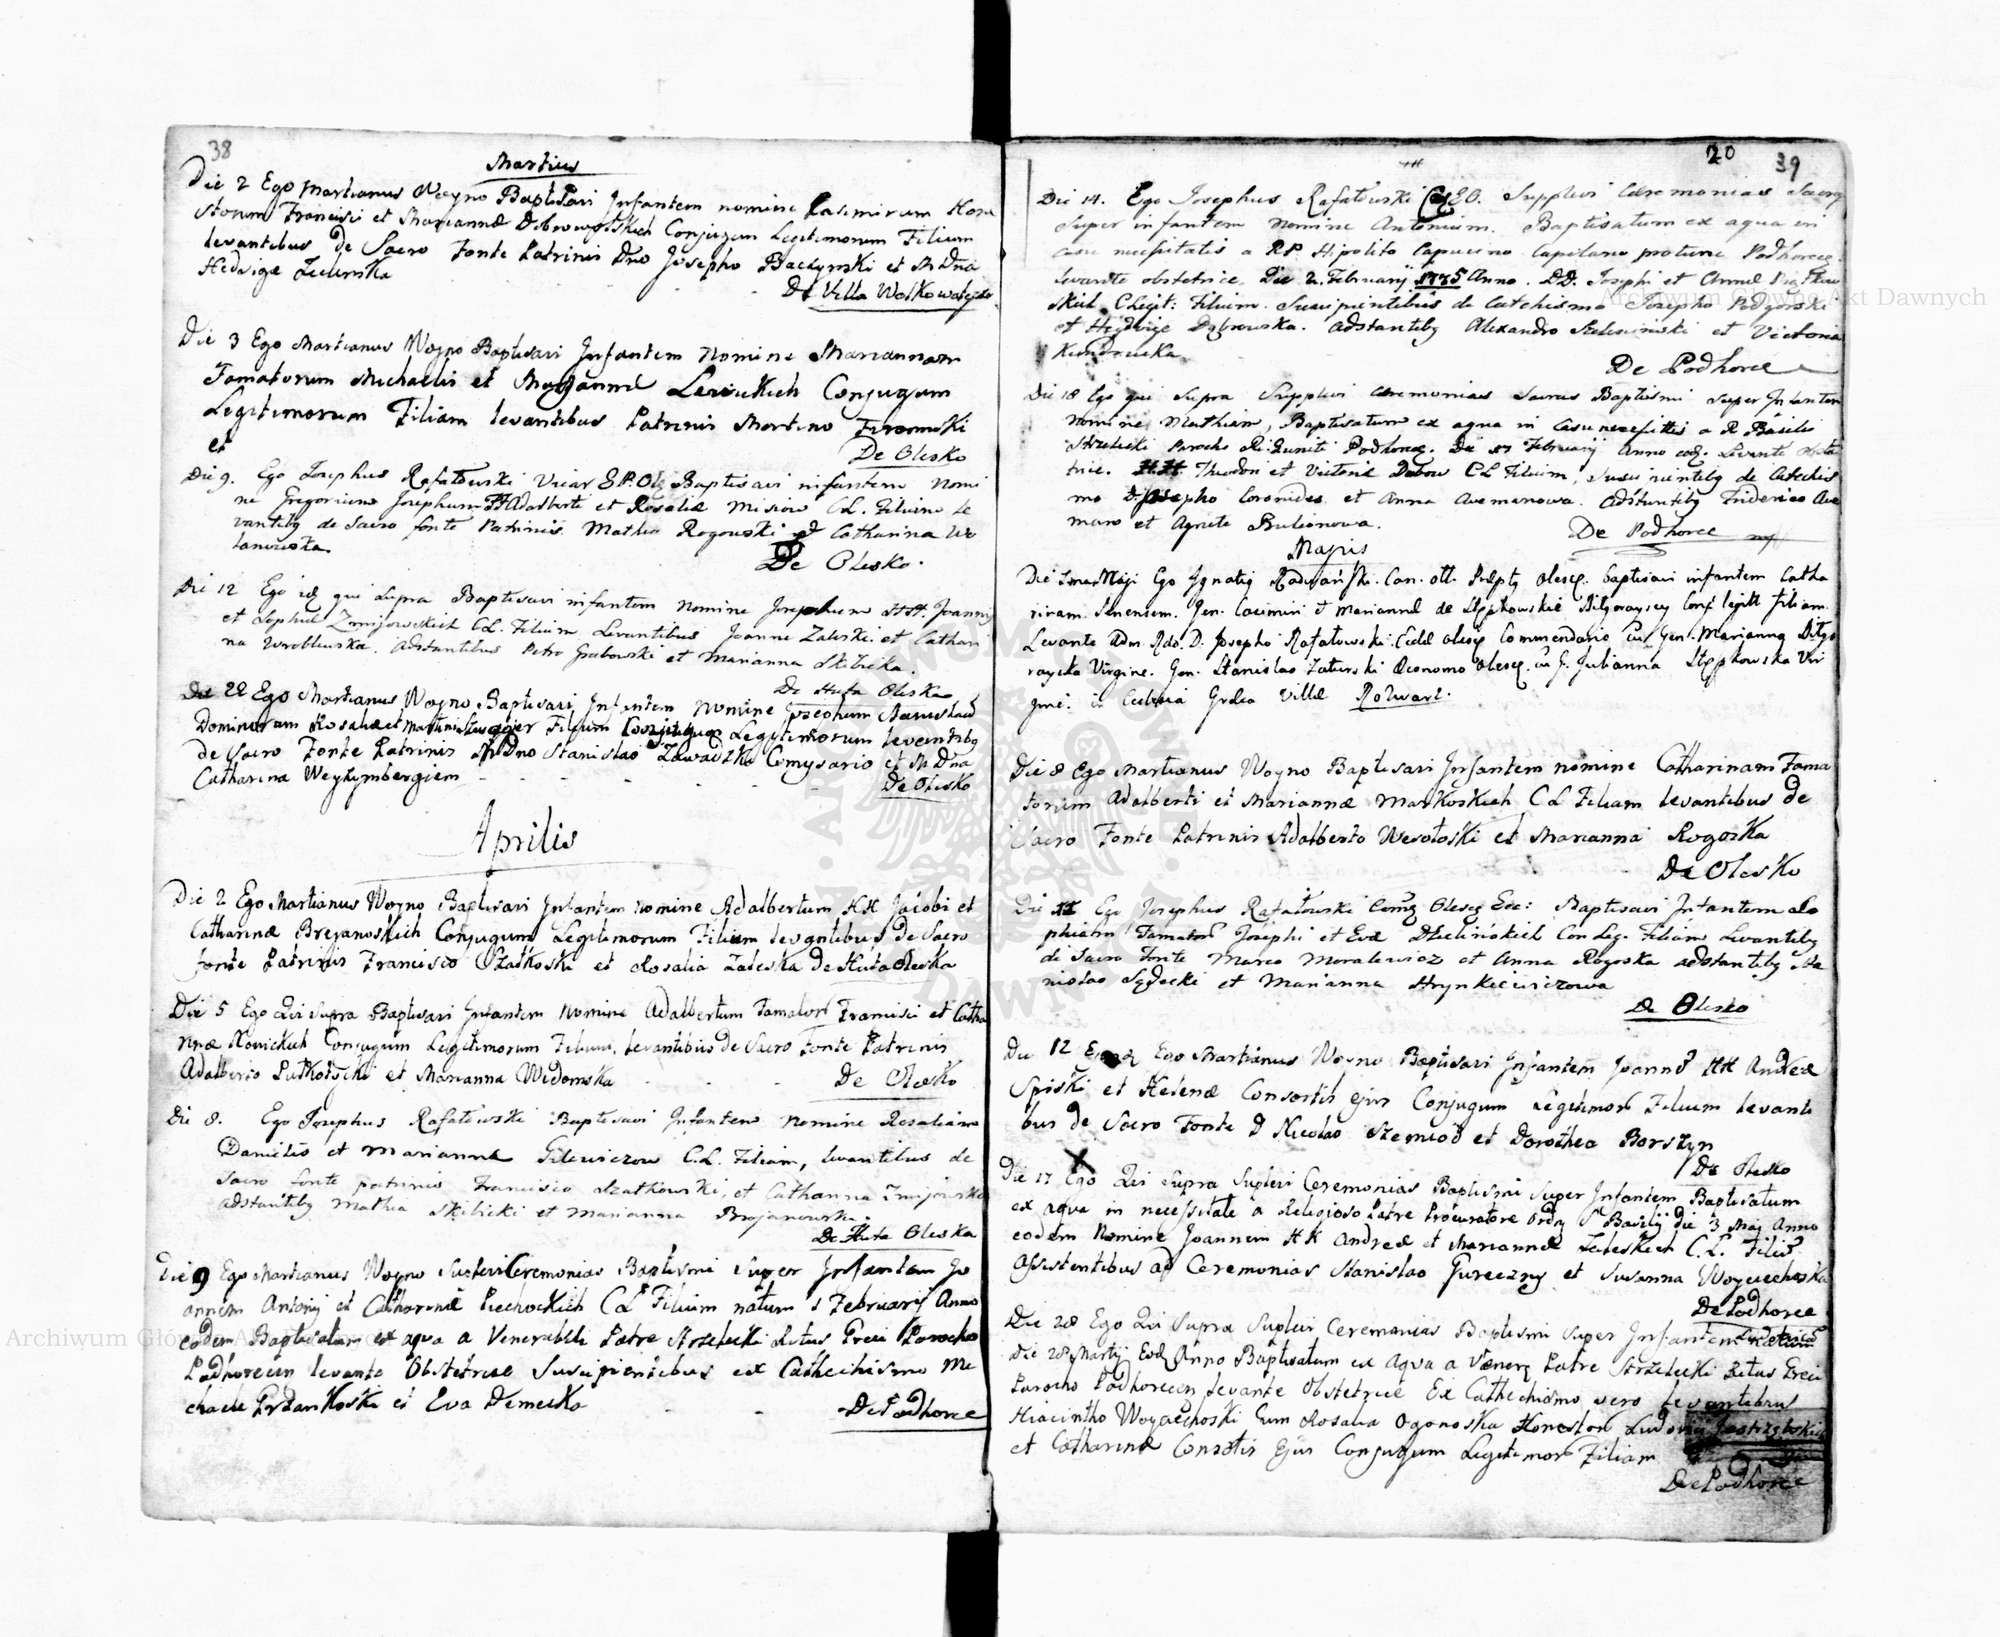 38
Martius
Die 2 Ego Martianus Woyno Baptisavi Infantem nomine Casimirum Hone
storum Francisci et Mariannæ Dobrowolskich Conjugum Legitimorum Filium
levantibus de Sacro Fonte Patrinis Dno Josepho Baczynski et M Dna
Hedvige Zielinska
De Villa Wolkowatycze
Die 3 Ego Martianus Woyno Baptisavi Infantem Nomine Mariannam
Famatorum Michaelis et Mariannæ Lewickich Conjugum
Legitimorum Filiam levantibus Patrinis Martino
et
De Olesko
Die 9. Ego Josephus Rafałowski Vicar E.P. Ol: Baptisavi infantem nomi
ne Gregorium Josephum FF Adalberti et Rosaliæ Misiow C.L. Filium le
vantibg de Sacro fonte Patrinis Mathia Rogowski et Catharina Wo
lanowska
De Olesko.
Die 12 Ego idq qui Supra Baptisavi infantem Nomine Josephum HH. Joannis
et Sophiæ Zmijowskich C.L. Filium Levantibus Joanne Zaleski et Cathari
na Wroblewska. Adstantibus Petro Grabowski et Marianna Skibicka.
De Huta Oleska
Die 22 Ego Martianus Woyno Baptisavi Infantem Nomine Josephum Stanislaum
Dominorum Rosaliæ et Martini Filium Conjugum Legitimorum levantibg
de Sacro Fonte Patrinis M Dno Stanislao Zawadzki Comysario et M Dna
Catharina Weylymbergiem
De Olesko
Aprilis
Die 2 Ego Martianus Woyno Baptisavi Infantem nomine Adalbertum HH Jacobi et
Catharinæ Brejanoskich Conjugum Legitimorum Filium levantibus de Sacro
fonte Patrinis Francisco Szatkoski et Rosalia Zaleska de Huta Oleska
Die 5 Ego Qui Supra Baptisavi Infantem Nomine Adalbertum Famator Francisci et Catha
rinæ Nowickich Conjugum Legitimorum Filium, levantibus de Sacro Fonte Patrinis
Adalberto et Marianna Widomska
De Olesko
Die 8. Ego Josephus Rafałowski Baptisavi Infantem Nomine Rosaliam
Danielis et Mariannæ Gilewiczow C.L. Filiam, levantibus de
Sacro fonte patrinis Francisco Szatkowski, et Catharina Zmijowska
adstantibg Mathia Skibicki et Marianna Brojanowska.
De Huta Oleska
Die 9 Ego Martianus Woyno Suplevi Ceremonias Baptismi Super Infantem Jo
annem Antonij et Catharinæ Piechockich C L Filium natum 1 Februarij Anno
eodem Baptisatum ex aqua a Venerabili Patre Strzelecki Ritus Greci Parocho
Podhorecen levante Obstetrice Suscipientibus ex Cathechismo Mi
chaele Przankoski et Eva Demecka
De Podhorce
20
39
Die 14. Ego Josephus Rafałowski E O. Supplevi Cæremonias Sacras
Super infantem Nomine Antonium. Baptisatum ex aqua in
casu necessitatis a RP. Hipolito Capucino Capelano protunc Podhorecg
levante obstetrice. Die 2. Februarij 1775 Anno. DD. Josephi et Annæ
skich C Legit: Filium. Suscipientibus de Catechismo Josepho Podgorski
et Hedvige Dąbrowska. Adstantibg Alexandro et Victoria
De Podhorce
Die 18 Ego qui Supra Supplevi Cæremonias Sacras Baptismi Super Infantem
Nomine Mathiam, Baptisatum ex aqua in Casu necessittis a R Basilio
Strzelecki Parocho Podhorecg. Die 27 Februarij Anno eodg. Levante Obste
trice. H.H. Theodori et Victoriæ Dubow C L Filium, Suscipientibg de Catechis
mo D. Josepho Coronides et Anna Aumanowa. Adstantibg Friderico Au
mano et Agnete Bulionowa.
De Podhorce
Majus
Die 1ma Maji Ego Ignatig Radwański. Can. ott. Præptg Olescg. baptisavi infantem Catha
rinam Senensem. Gen. Casimiri et Mariannæ de Stępkowskie Biłgorayscy Conj legitt filiam.
Levante Adm. Rdo. D. Josepho Rafałowski Eccl Olescg Commendario cu Gen. Marianna Biłgo
rayska Virgine. Gen. Stanislao Zaturski Oeconomo Olescg. cu G. Julianna Stępkowska Vir
gine. in Eclesia Græca Villæ Rozwarz.
Die 8 Ego Martianus Woyno Baptisavi Infantem nomine Catharinam Fama
torum Adalberti et Mariannæ Markoskich C L Filiam levantibus de
Sacro Fonte Patrinis Adalberto Wesołoski et Marianna Rogoska
De Olesko
Die 11 Ego Josephus Rafałowski Comg Olescg Ecc: Baptisavi Infantem So
phiam Famator Josephi et Evæ Dzielińskich Con Leg. Filiam Levantibg
de Sacro Fonte Marco Moralewicz et Anna Rogoska adstantibg Sta
nislao Sędecki et Marianna Hrynkiewiczowa
de Olesko
Die 12 Ego Martianus Woyno Baptisavi Infantem Joann HH Andreæ
Spiski et Helenæ Consortis ejus Conjugum Legitimor Filium levanti
bus de Sacro Fonte D Nicolao Szemiod et Dorothea Borszyn
De Olesko
Die 17 Ego Qui Supra Suplevi Ceremonias Baptismi Super Infantem Baptisatum
ex aqua in necessitate a Religioso Patre Procuratore Ordg S Basilij die 3 Maj Anno
eodem Nomine Joannem HH Andreæ et Mariannæ Zaleskich C.L. Filiu
Assistentibus ad Ceremonias Stanislao Gureczny et Susanna Woyciechoska
De Podhorce
Die 28 Ego Qui Supra Suplevi Ceremonias Baptismi Super Infantem
Die 28 Martij Eod Anno Baptisatum ex Aqua a Venerg Patre Strzelecki Ritus Greci
Parocho Podhorecen levante Obstetrice Ex Cathechismo vero levantibus
Hiacintho Woyciechoski Cum Rosalia Ogonoska Honestor Ludovici Jastrzębski
et Catharinæ Consortis Ejus Conjugum Legitimor Filiam
De Podhorce
Archiwum Główne Akt Dawnych